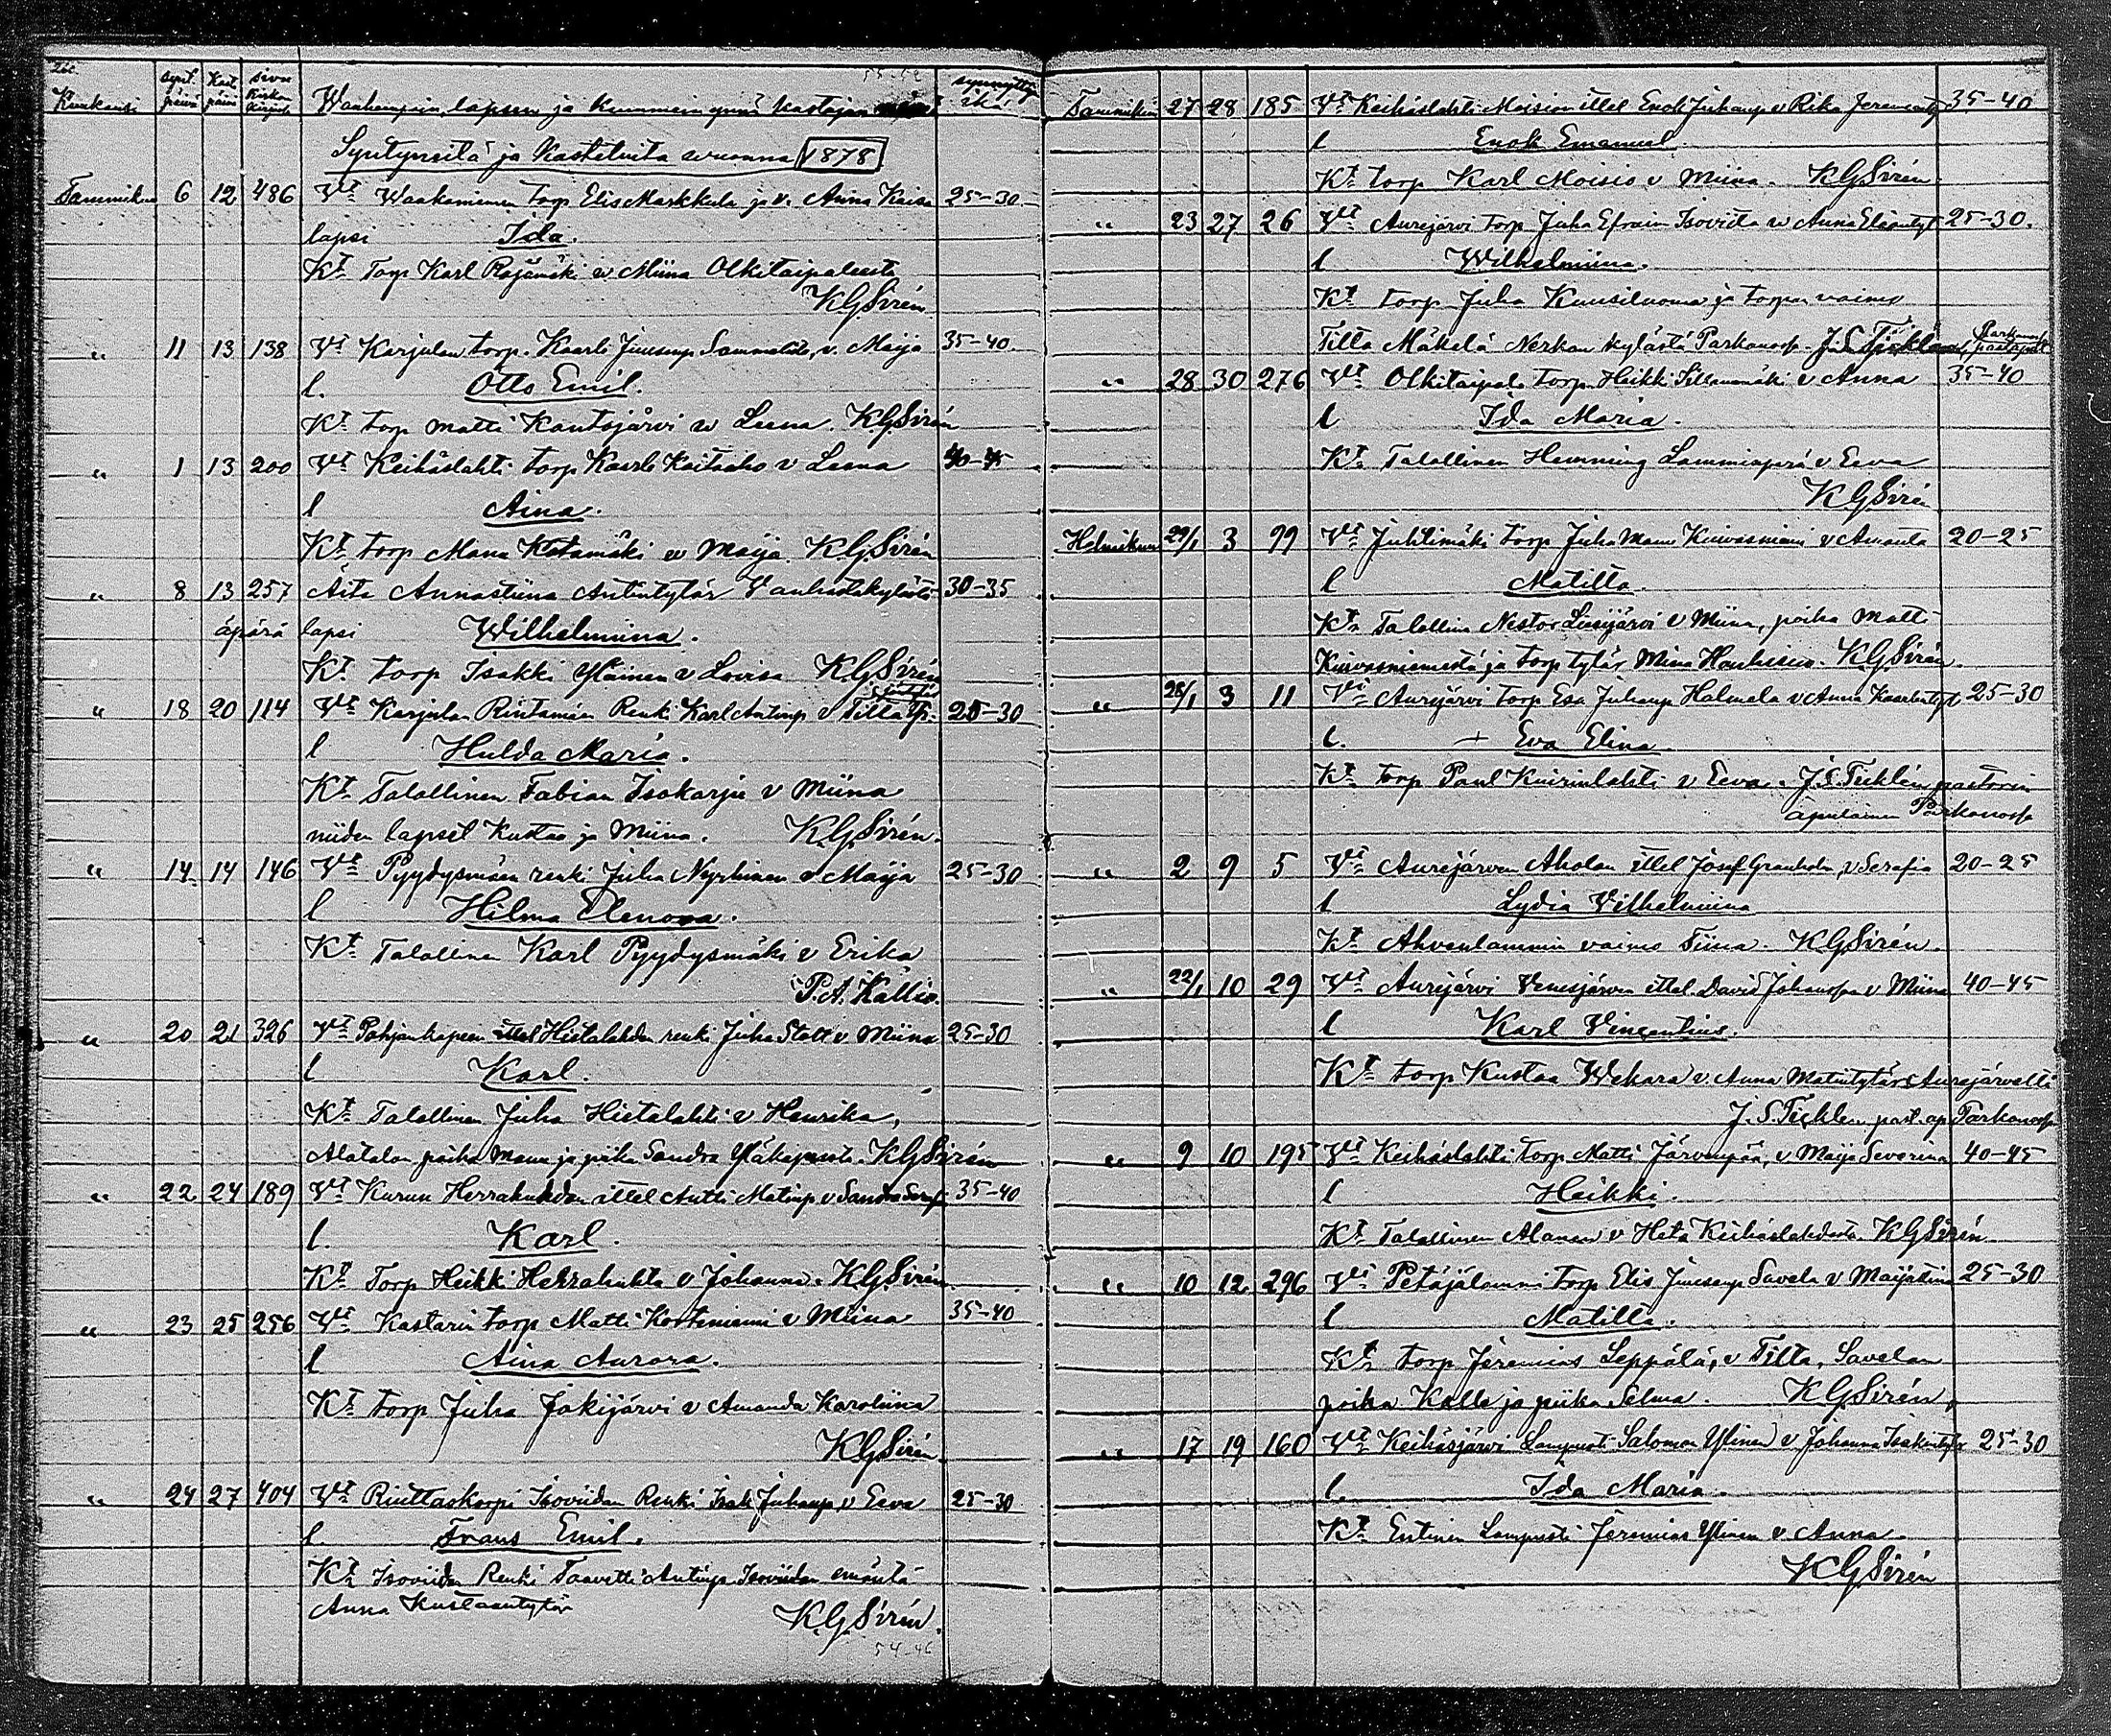 Kuukausi synt. päivä Kast. päivä sivu Kirkon kirjassa Wanhempain, lapsen ja kummein ynnä kastajan synnyttäjän ikä.
Syntyneitä ja Kastetuita wuonna 1878
Tammikuu 6 12 486 Vt Waakaniemen torp Elis Markkula ja v. Anna Kaisa 25-30
lapsi Ida.
Kt Torp Karl Rajamäki v Miina Olkitaipaleesta
KGSirén
" 11 13 138 Vt Karjulan torp. Kaarli Juusenp Sammalisto, v. Maija 35-40
l. Otto Emil.
Kt torp Matti Kantojärvi v Leena. KGSirén
" 1 13 200 Vt Keihäslahti torp Kaarle Koitaaho v Leena 40-45
l Aina.
Kt torp Manu Katamäki v Maija. KGSirén
" 8 13 257 Äiti Annastiina Antintytär Vanhastakylästä 30-35
äpärä lapsi Wilhelmiina.
Kt torp Isakki Yläinen v Lovisa KGSirén
" 18 20 114 Vt Karjulan Rintamäen Renki Karl Antinp v Tilta 25-30
l Hulda Maria.
Kt Talollinen Fabian Isokarju v Miina
niiden lapset Kustaa ja Miina. KGSirén.
" 14 14 146 Vt Pyydysmäen renki Juha Nyrhinen v Maija 25-30
l Hilma Elenora.
Kt Talollinen Karl Pyydysmäki v Erika
P.A. Kallio.
" 20 21 326 Vt Pohjankapeen Hietalahden renki Juha Stolt v Miina 25-30
l Karl.
Kt Talollinen Juha Hietalahti v Henrika,
Alatalon poika Manu ja piika Sandra KGSirén
" 22 24 189 Vt Kurun Herrakuhdan ittel Antti Matinp v Sandra 35-40
l. Karl.
Kt Torp Heikki Herrakuhta v Johanna. KGSirén
" 23 25 256 Vt Kastarin torp Matti Korteniemi v Miina 35-40
l Aina Aurora.
Kt torp Juha Jokijärvi v Amanda Karoliina
KGSirén.
" 24 27 404 Vt Riuttaskorpi Isoviidan Renki Isak Juhanp. v Eeva 25-30
l. Frans Emil.
Kt Isoviidan Renki Taavetti Antinp Isoviidan emäntä
Anna Kustaantytär KGSirén.
54-46
Tammikuu 27 28 185 Vt Keihäslahti Moision ittel Enok Juhanp v Rika Jeremiant 35-40
l Enok Emanuel.
Kt torp Karl Moisio v Miina. KGSirén.
" 23 27 26 Vt Aurejärvi torp Juha Efraim Isoviita v Anna Eliantyt 25-30.
l Wilhelmiina.
Kt torp Juha Kuusiluoma ja torpan vaimo
Tilta Mäkelä Nerkon kylästä Parkanossa. J.S. Ticklén,
" 28 30 276 Vt Olkitaipale torp. Heikki Sillanmäki v Anna 35-40
l Ida Maria.
Kt Talollinen Hemming Lamminperä v Eeva
KGSirén
Helmikuu 29/1 3 99 Vt Juhtimäki torp Juha Manu Kuivasniemi v Amanta 20-25
l Matilta.
Kt Talollinen Nestor Liesijärvi v Miina, poika Matti
Kuivasniemestä ja torp tytär Miina Hauhisuo. KGSirén.
" 28/1 3 11 Vt Aurejärvi torp Esa Juhanp Halmela v Anna Kaarlentyt 25-30
l. + Eva Elina.
Kt torp Paul Kuivinlahti v Eeva. J.S. Ticklén pastorin
apulainen Parkanossa
" 2 9 5 Vt Aurejärven Aholan ittel Josef Granholm, v Serafia 20-25
l Lydia Vilhelmiina
Kt Ahvenlammin vaimo Tiina. KGSirén.
" 22/1 10 29 Vt Aurejärvi Venesjärven ittel. David Johanssen v Miina 40-45
l Karl Vincentius.
Kt torp Kustaa Wehara v. Anna Matintytär Aurejärveltä
J.S. Ticklén past. ap Parkanossa
" 9 10 195 Vt Keihäslahti torp Matti Järvenpää, v Maija Severina 40-45
l Heikki.
Kt Talollinen Alanen v Heta Keihäslahdesta. KGSirén.
" 10 12 296 Vt Petäjälammi torp Elis Juusenp Savela v Maijastina 25-30
l Matilta.
Kt torp Jeremias Leppälä, v Tilta, Savelan
poika Kalle ja piika Selma. KGSirén,
" 17 19 160 Vt Keihäsjärvi Lampuoti Salomon Ylinen v Johanna Isakintyt 25-30
l. Ida Maria.
Kt Entinen Lampuoti Jeremias Ylinen v Anna.
KGSirén